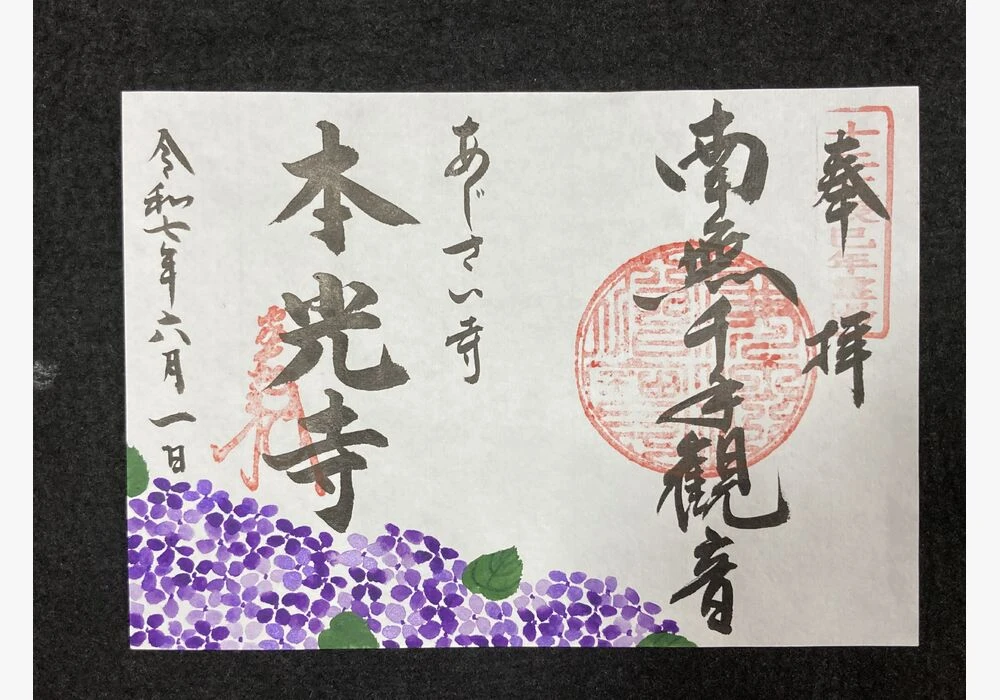 奉拝
南無千手観音
あじさい寺
本光寺
令和七年六月一日